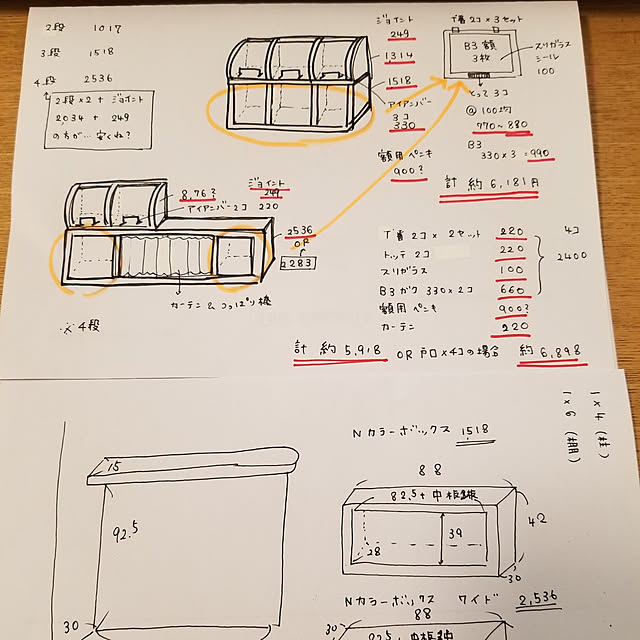 2段 1017
3段 1518
4段 2536
2段×2 + ジョイント
2034 + 249
のちが… 安くね?
ジョイント
249
1,314
1518
アイアンバー
3コ
330
額用ペンキ
900?
丁番2コ×3セット
B3額
3枚
スリガラス
シール
100
とって3コ
@100均
770~880
B3
330×3=990
計 約6,181円
8,76?
ジョイント
249
アイアンバー2コ 220
2536
OR
2283
カーテン & つっぱり棒
※4段
丁番2コ×2セット 220
トッテ2コ 220
スリガラス 100
B3ガク 330×2コ 660
額用ペンキ 900?
カーテン 220
4コ
2400
計 約5,918 OR 戸口×4コの場合 約6,898
1×4(柱)
1×6(棚)
Nカラーボックス 1518
88
82.5+中板2枚
39
28
42
30
15
92.5
30
Nカラーボックス ワイド 2,536
88
30